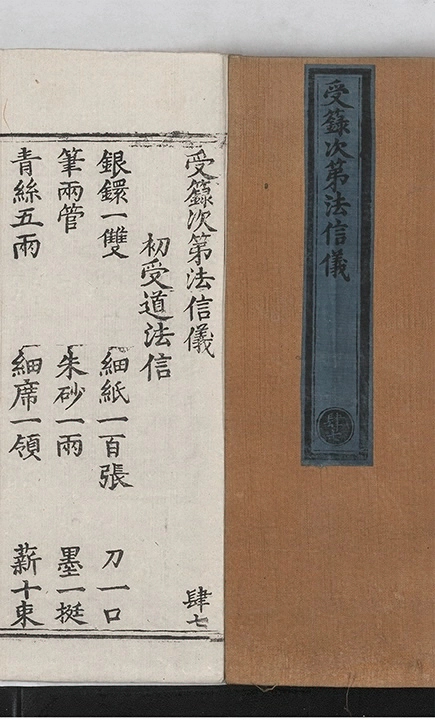 受籙次第法信儀
肆七
受籙次第法信儀
肆七
初受道法信
銀鐶一雙
細紙一百張
刀一口
筆兩管
朱砂一兩
墨一挺
青絲五兩
細席一領
薪十束